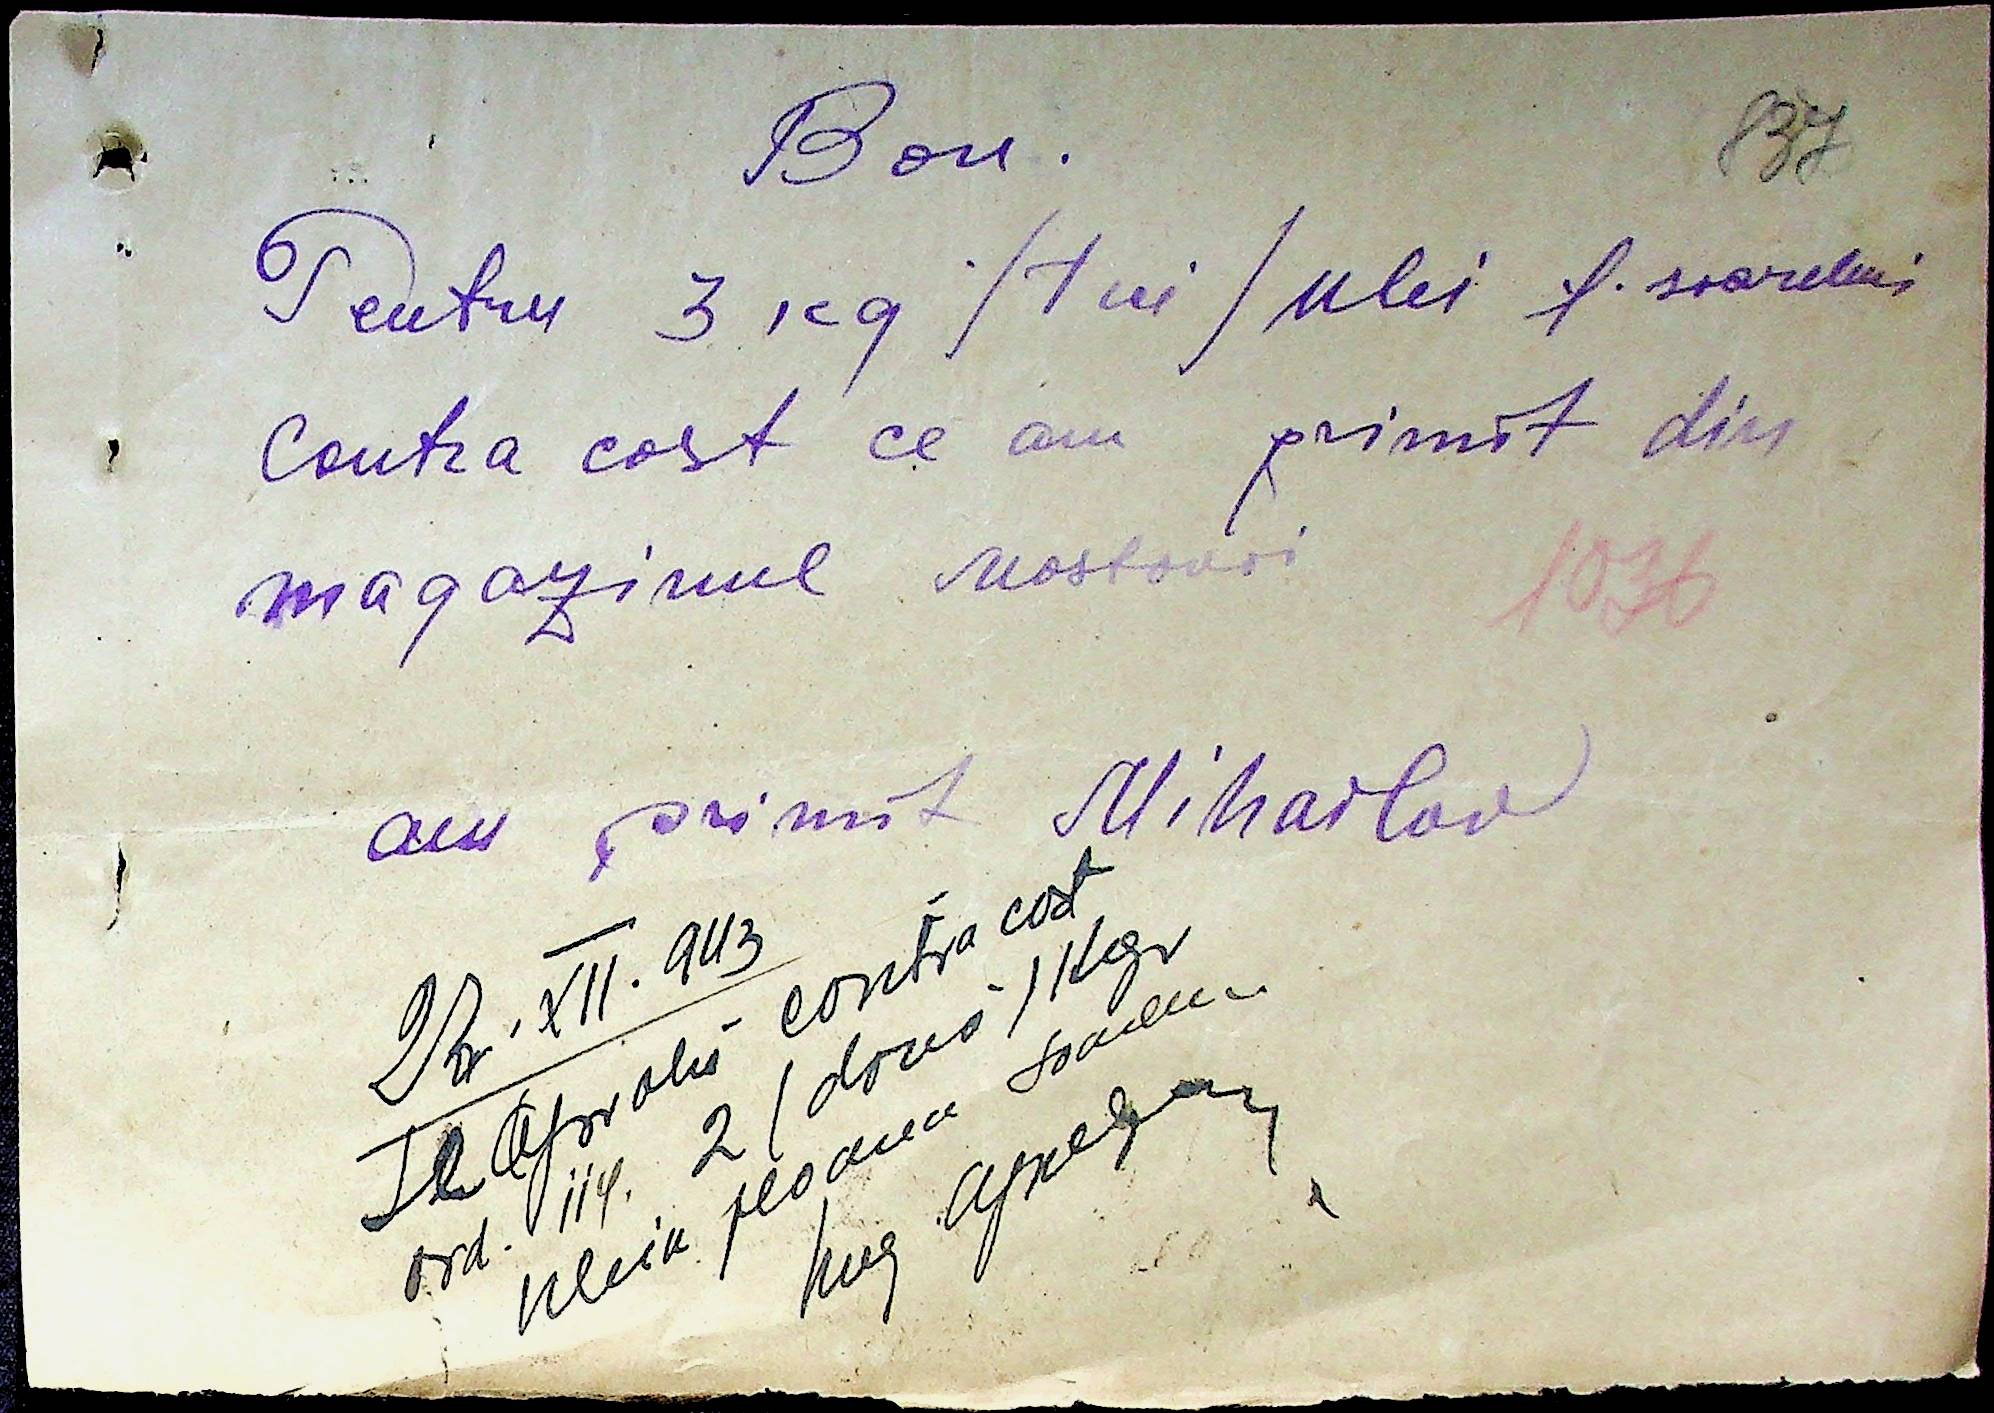 Bon.
837
Pentru 3 kg /trei/ ulei f. soarelui
Contra cost ce am primit din
magazinul Mostovoi
1036
am primit Mihailov
XII. 943
Se aprobă contra cost
ord. 2 / două / Kgr
ulei floarea soarelui